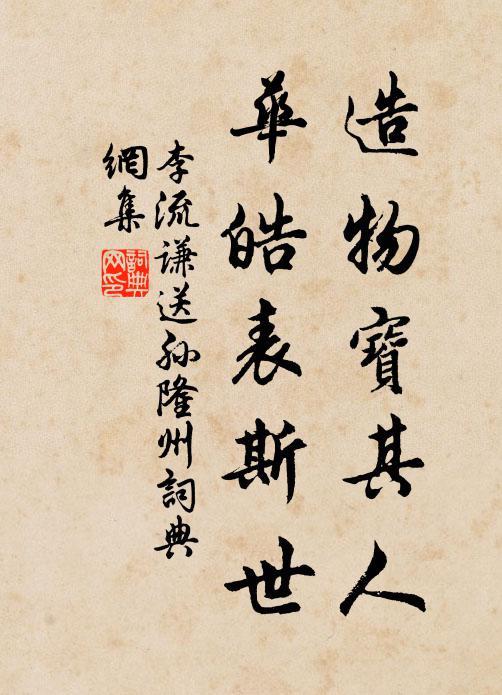 造物寶其人
華皓表斯世
李流謙送孙隆州詞典
網集
詞典
网印